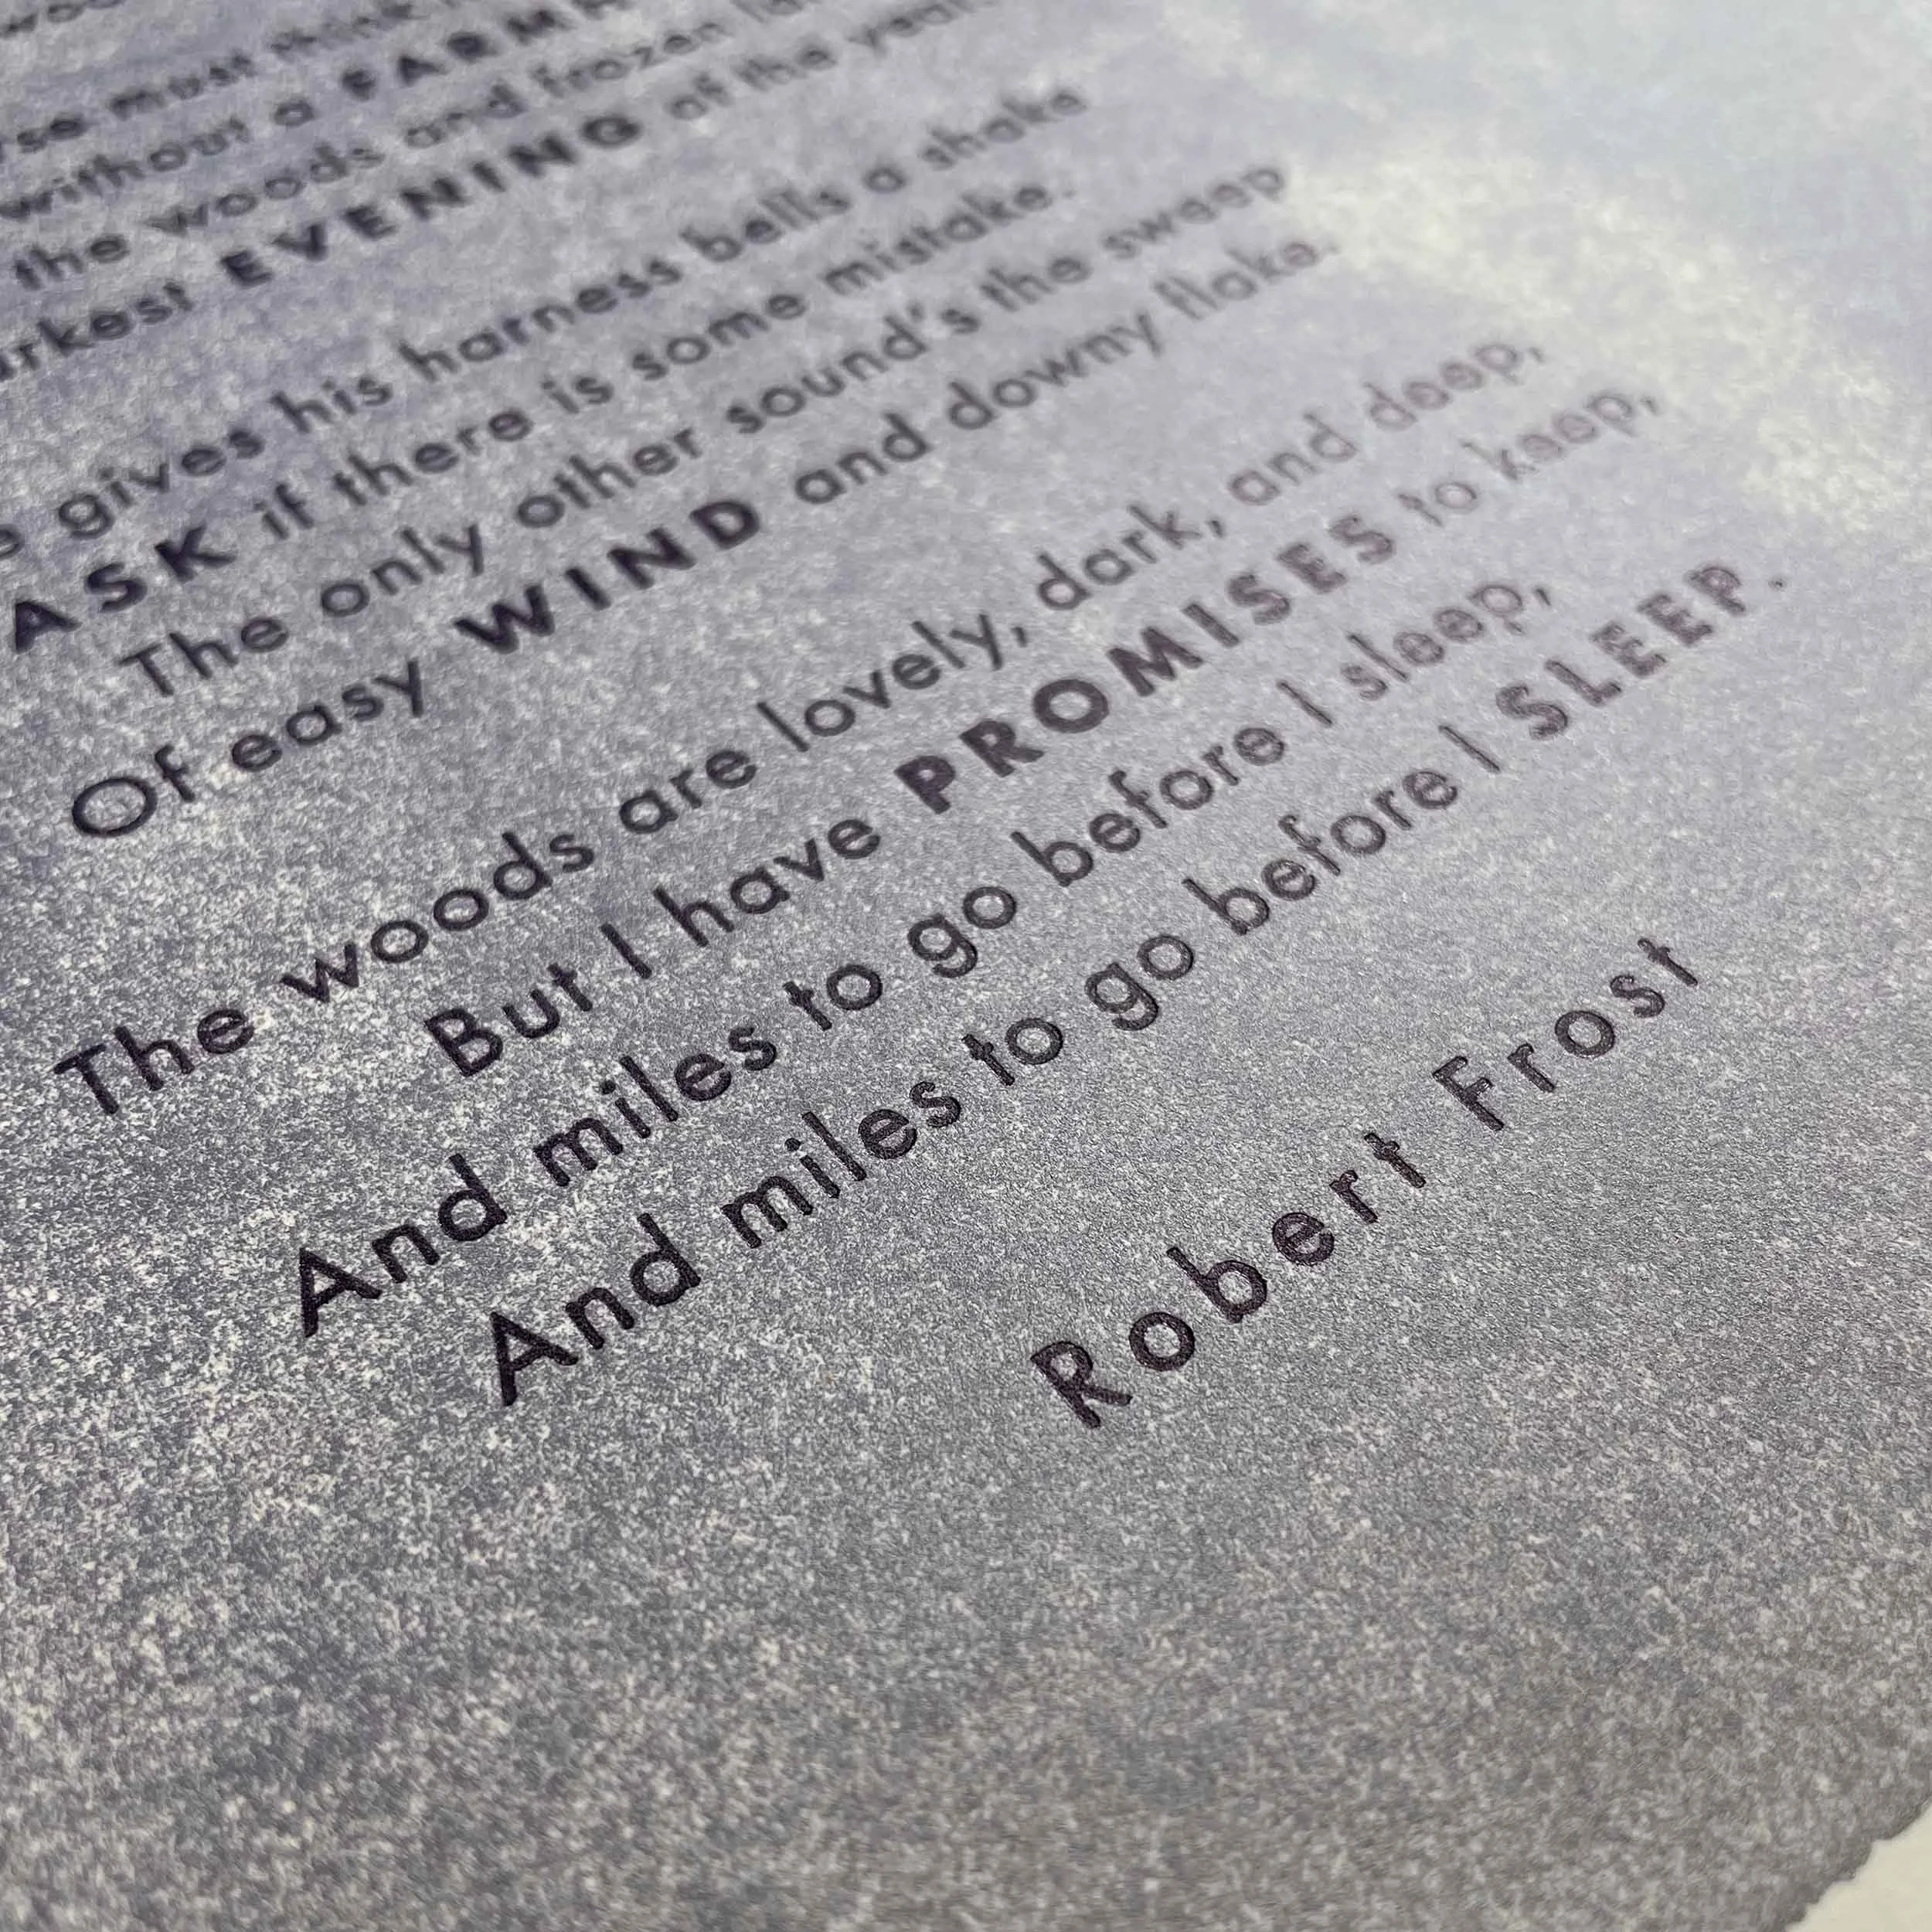 must think
without a
the woods and frozen
EVENING of the year
gives his harness bells a shake
ASK if there is some mistake.
The only other sound's the sweep
Of easy WIND and downy flake.
The woods are lovely, dark, and deep,
But I have PROMISES to keep,
And miles to go before I sleep,
And miles to go before I SLEEP.
Robert Frost